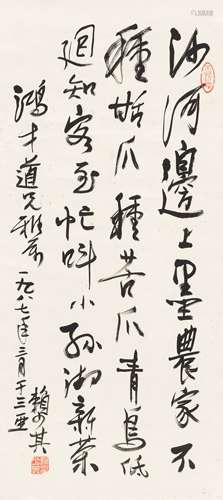 沙河邊上是農家不
種甜瓜種苦瓜青鳥低
迴知客至忙叫小孫湖新茶
鴻才道兄雅屬
一九八七年三月于三亞
賴少其